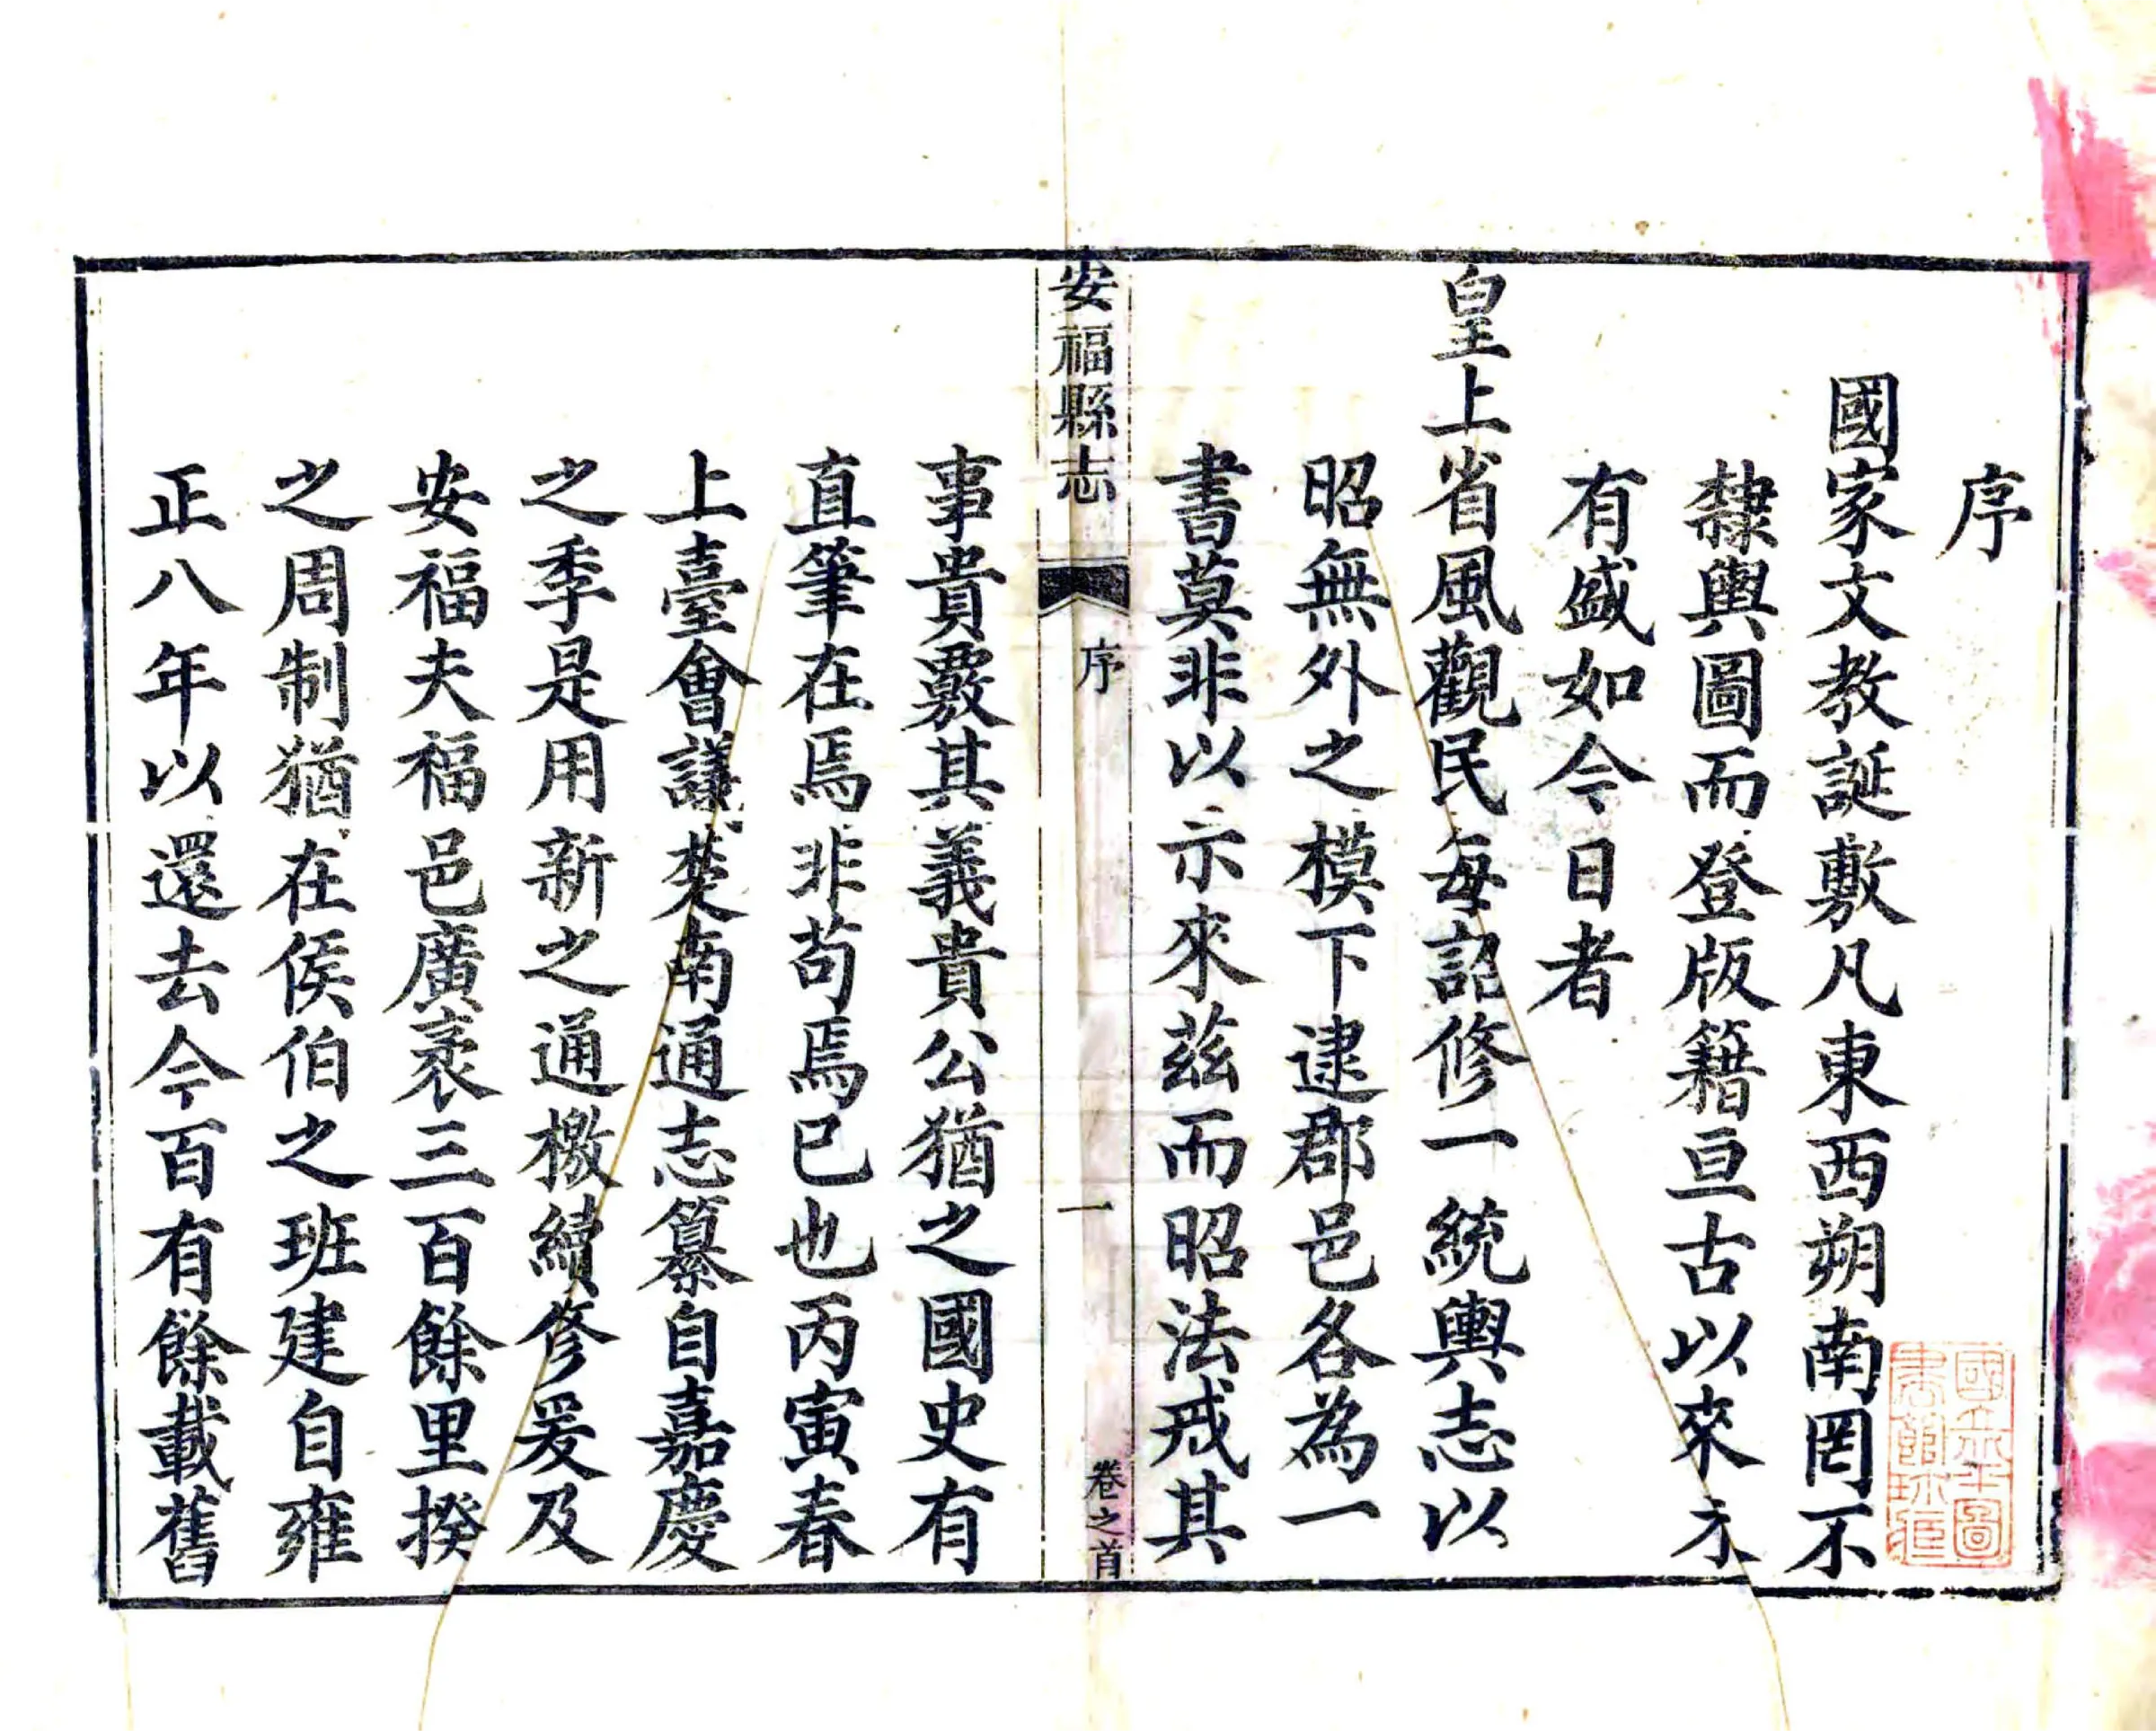 序
國家文教誕敷凡東西朔南罔不
隸輿圖而登版籍亘古以來未
有盛如今日者
皇上省風觀民每詔修一統輿志以
昭無外之模下逮郡邑各為一
書莫非以示來茲而昭法戒其
安福縣志
序
一
卷之首
事貴覈其義貴公猶之國史有
直筆在焉非苟焉已也丙寅春
上臺會議楚南通志纂自嘉慶
之季是用新之通檄續修爰及
安福夫福邑廣袤三百餘里揆
之周制猶在侯伯之班建自雍
正八年以還去今百有餘載舊
國立北平圖
書館珍藏